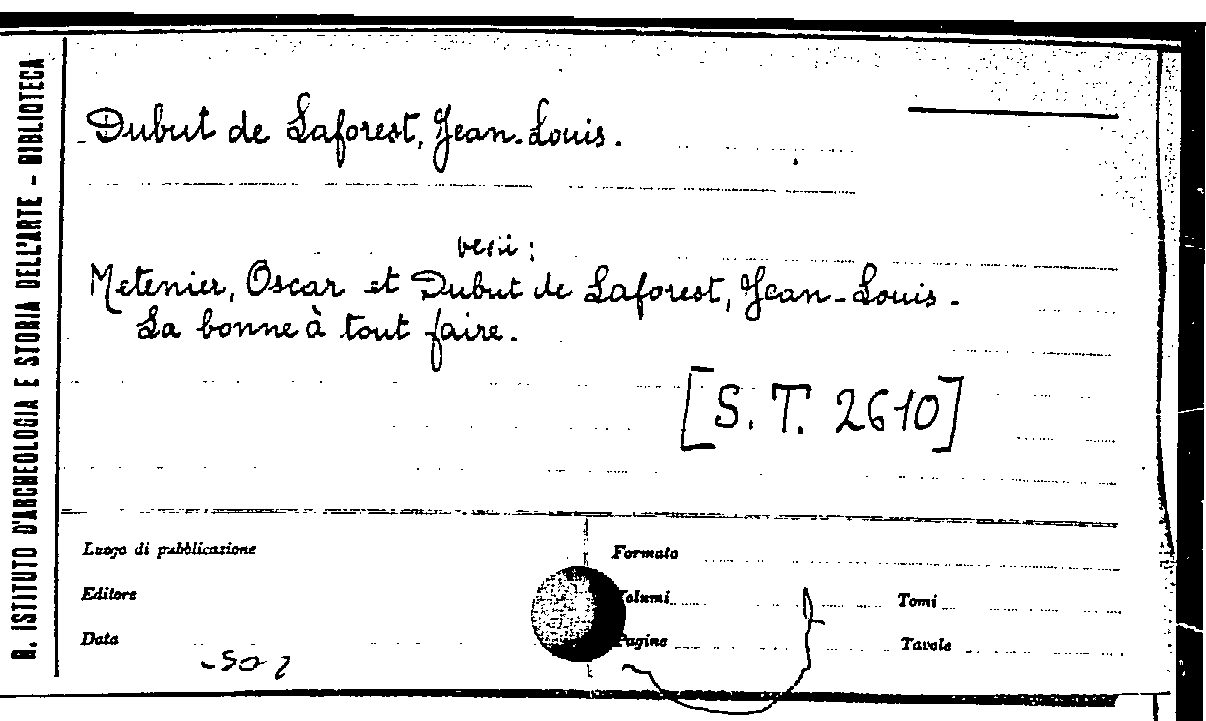 R. ISTITUTO D'ARCHEOLOGIA E STORIA DELL'ARTE - BIBLIOTECA
Dubut de Laforest, Jean-Louis.
vedi:
Metenier, Oscar et Dubut de Laforest, Jean-Louis.
La bonne à tout faire.
[S. T. 2610]
Luogo di pubblicazione
Formato
Editore
Volumi
Tomi
Data
Pagine
Tavole